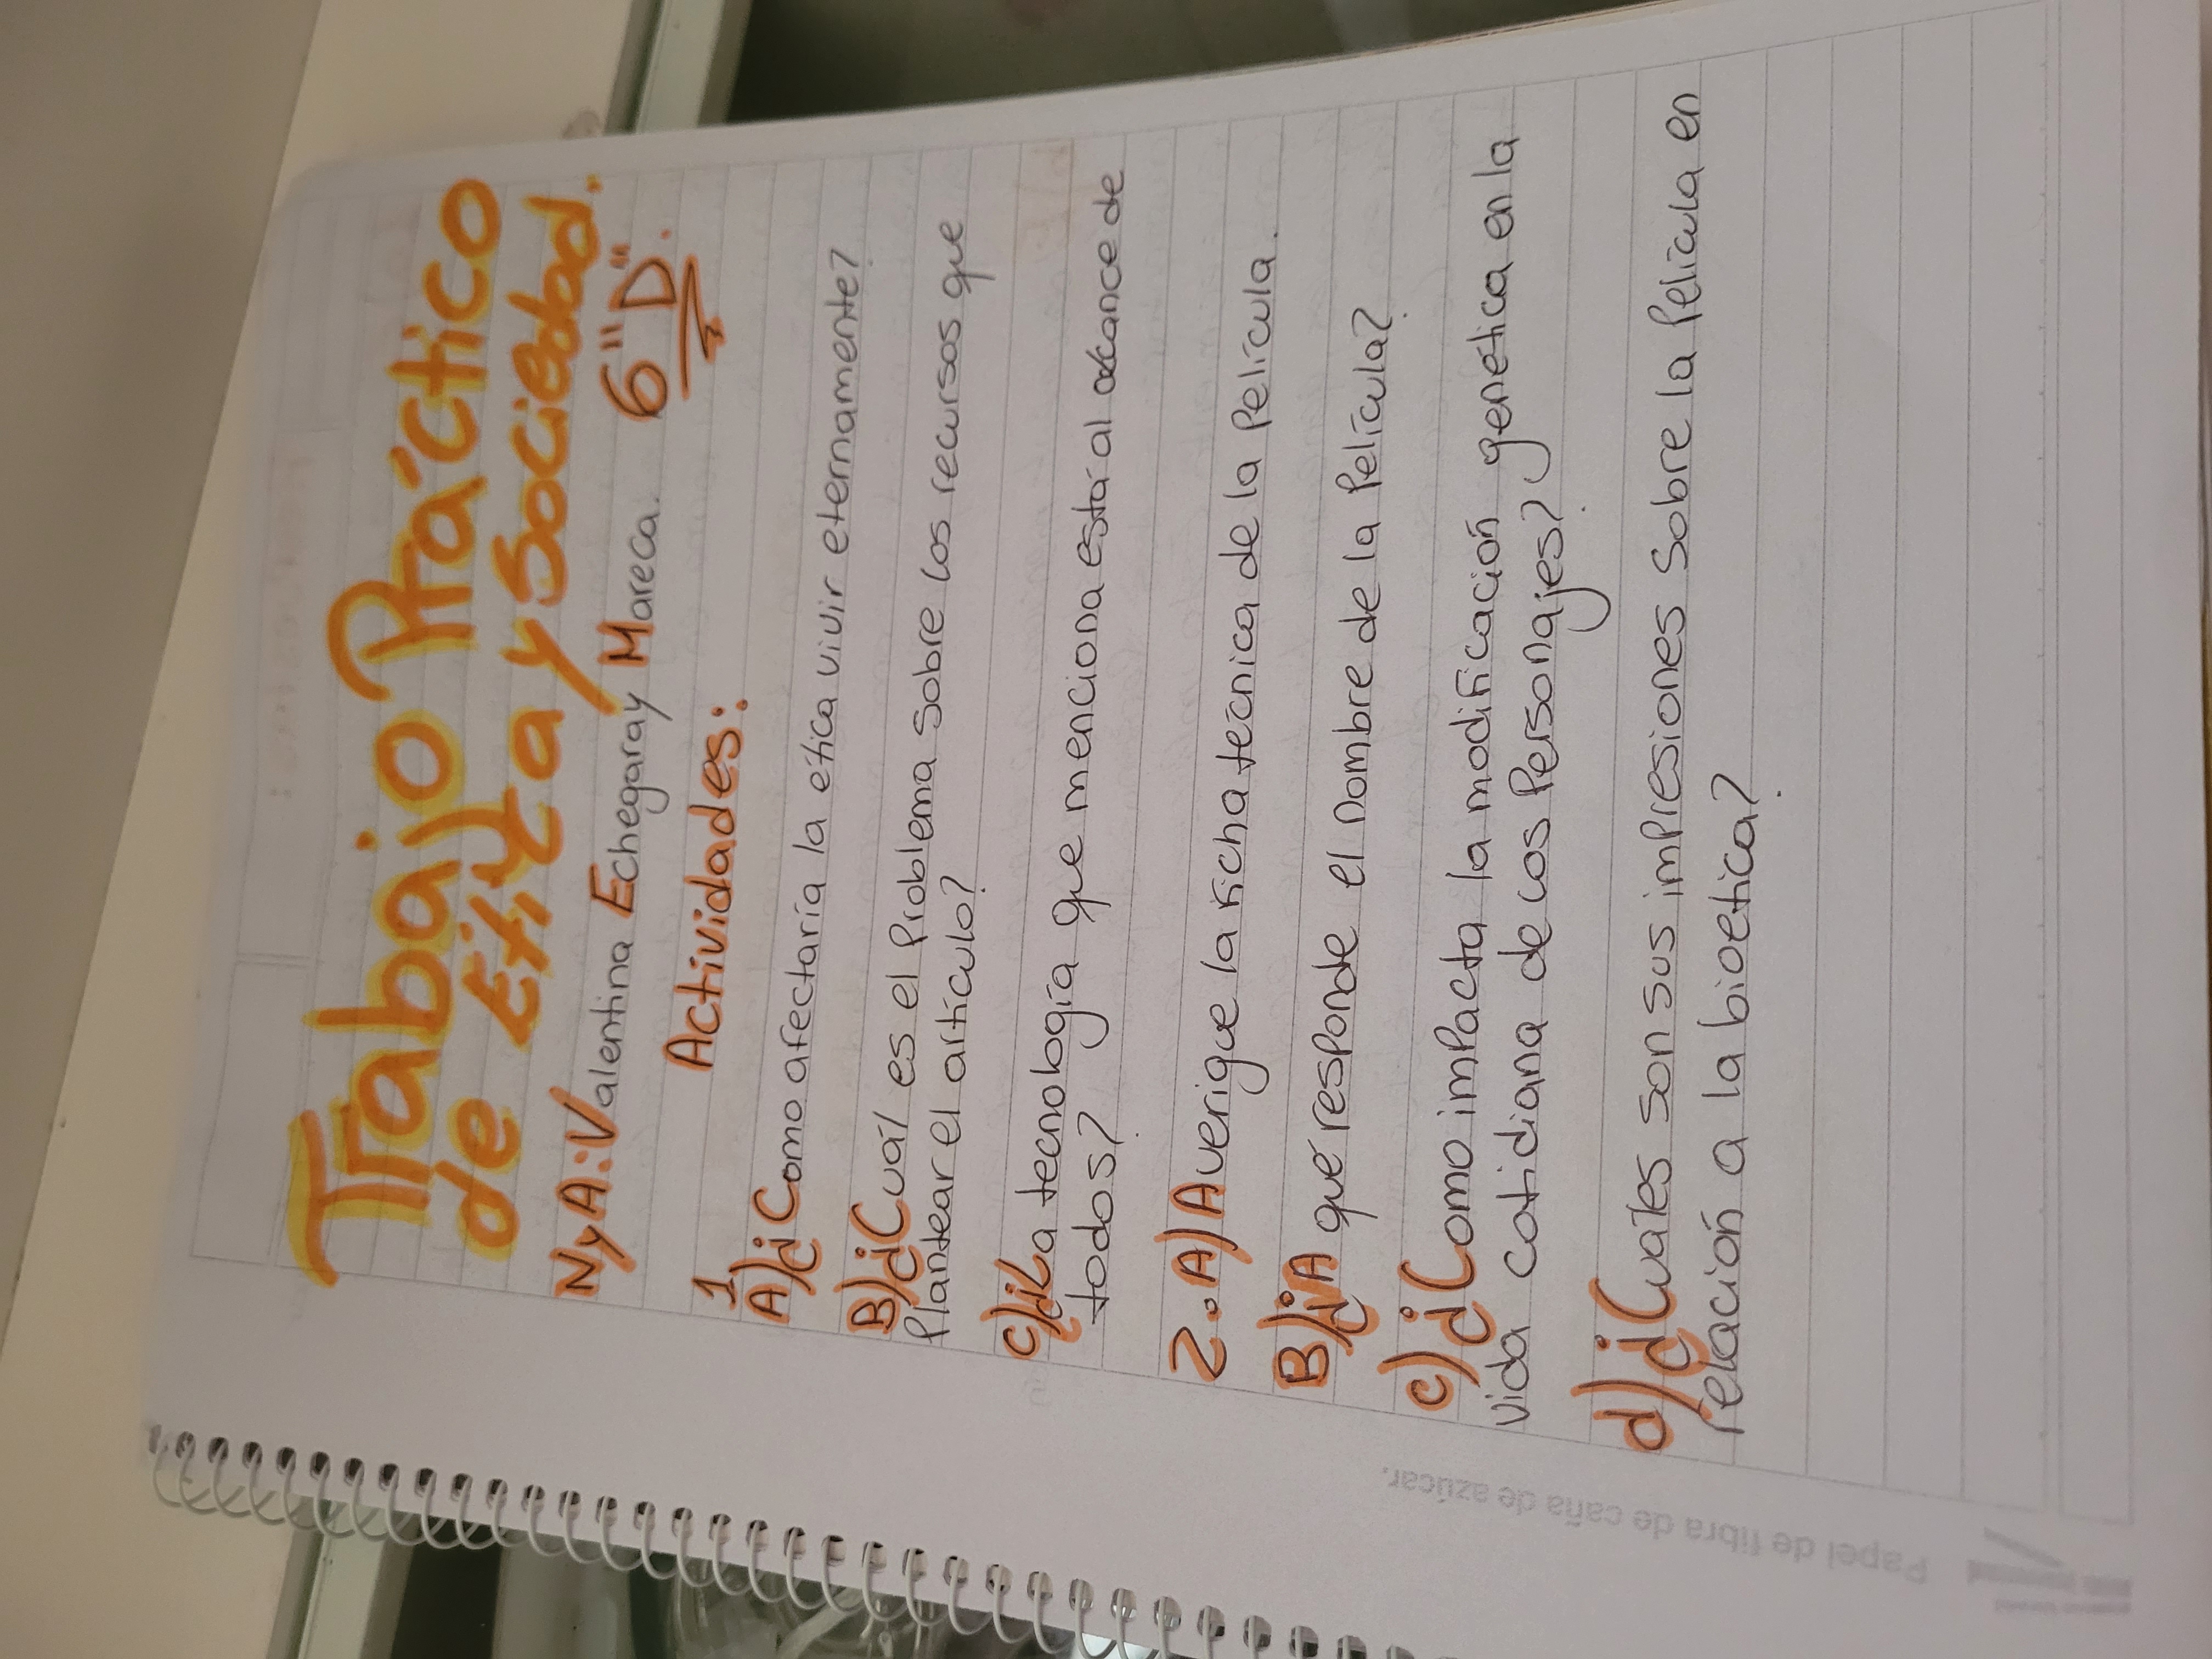 Trabajo Práctico
de Ética y Sociedad.
NyA: Valentina Echegaray Mareca. 6"D".
Actividades:
1
A) ¿Como afectaría la ética vivir eternamente?
B) ¿Cuál es el Problema sobre los recursos que
Plantear el artículo?
C) ¿La tecnología que menciona está al alcance de
todos?
2. A) Averigue la ficha técnica de la Película.
B) ¿A qué responde el nombre de la Película?
c) ¿Como impacta la modificación genética en la
vida cotidiana de los Personajes?
d) ¿Cuáles son sus impresiones sobre la Película en
relación a la bioetica?
Papel de fibra de caña de azúcar.